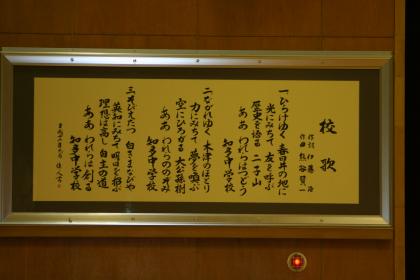 校歌
作詞 伊藤
作曲 熊谷賢一
一、ひらけゆく 春日井の地に
光にみちて 友を呼ぶ
歴史を語る 二子山
ああ われらはつどう
知多中学校
二、ながれゆく 木津のほとり
力にみちて 夢を喚ぶ
空にひろがる 大公孫樹
ああ われらののぞみ
知多中学校
三、そびえたつ 白きまなびや
英知にみちて 明日を招ぶ
理想は高し 自主の道
ああ われらは創る
知多中学校